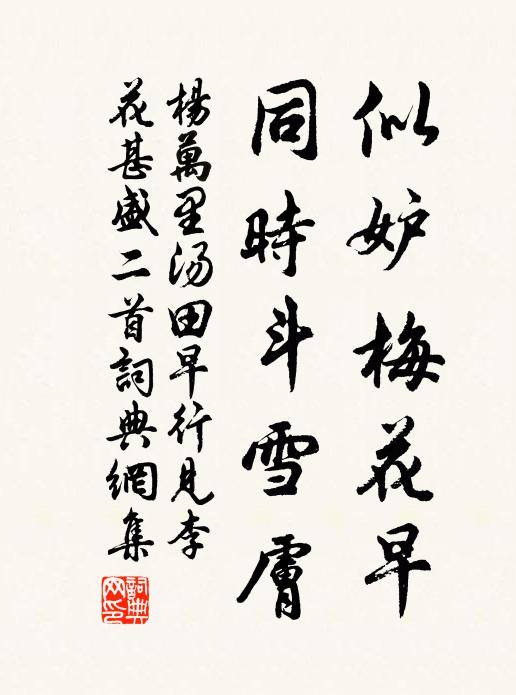 似妒梅花早
同時斗雪膚
楊萬里湯田早行見李
花甚盛二首詞典網集
詞典網印